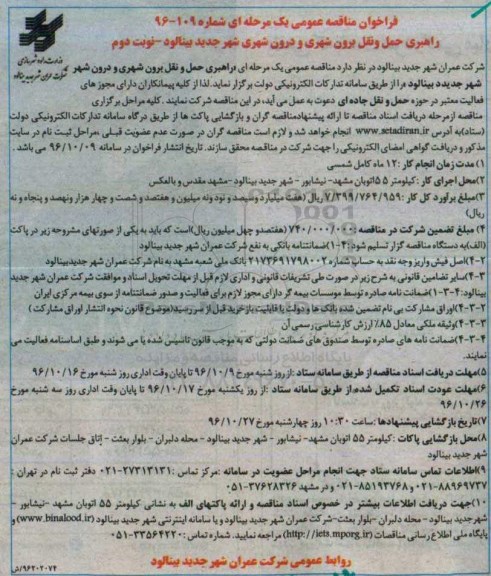 فراخوان مناقصه عمومی یک مرحله ای شماره ۱۰۹-۹۶
راهبری حمل ونقل برون شهری و درون شهری شهر جدید بینالود -نوبت دوم
شرکت عمران شهر جدید بینالود در نظر دارد مناقصه عمومی یک مرحله ای «راهبری حمل و نقل برون شهری و درون شهر
شهر جدید بینالود» را از طریق سامانه تدارکات الکترونیکی دولت برگزار نماید. لذا از کلیه پیمانکاران دارای مجوز های
فعالیت معتبر در حوزه حمل و نقل جاده ای دعوت به عمل می آید، در این مناقصه شرکت نمایند . کلیه مراحل برگزاری
مناقصه از مرحله دریافت اسناد مناقصه تا ارائه پیشنهاد مناقصه گران و بازگشایی پاکت ها از طریق درگاه سامانه تدارکات الکترونیکی دولت
(ستاد) به آدرس www.setadiran.ir انجام خواهد شد و لازم است مناقصه گران در صورت عدم عضویت قبلی، مراحل ثبت نام در سایت
مذکور و دریافت گواهی امضای الکترونیکی را جهت شرکت در مناقصه محقق سازند. تاریخ انتشار فراخوان در سامانه ۹۶/۱۰/۰۹ می باشد .
۱) مدت زمان انجام کار : ۱۲ ماه کامل شمسی
۲) محل اجرای کار : کیلومتر ۵۵ اتوبان مشهد- نیشابور - شهر جدید بینالود -مشهد مقدس و بالعکس
۳) مبلغ برآورد کل کار : ۷/۳۹۹/۷۶۴/۹۵۹ ریال (هفت میلیارد وسیصد و نود ونه میلیون و هفتصد و شصت و چهار هزار ونهصد و پنجاه و نه
ریال)
۴) مبلغ تضمین شرکت در مناقصه : ۷۴۰/۰۰۰/۰۰۰ (هفتصدو چهل میلیون ریال) است که باید به یکی از صورتهای مشروحه زیر در پاکت
(الف) به دستگاه مناقصه گزار تسلیم شود : ۴-۱) ضمانتنامه بانکی به نفع شرکت عمران شهر جدید بینالود
۴-۲) اصل فیش واریز وجه نقد به حساب شماره ۲۱۷۳۶۹۱۷۹۸۰۰۲ بانک ملی شعبه مشهد به نام شرکت عمران شهر جدیدبینالود
۴-۳) سایر تضامین قانونی به شرح زیر در صورت طی تشریفات قانونی و اداری لازم قبل از مهلت تحویل اسناد و موافقت شرکت عمران شهر جدید
بینالود : ۴-۳-۱) ضمانت نامه صادره توسط موسسات بیمه گر دارای مجوز لازم برای فعالیت و صدور ضمانتنامه از سوی بیمه مرکزی ایران
۴-۳-۲) اوراق مشارکت بی نام تضمین شده بانک ها و دولت با قابلیت باز خرید قبل از سررسید (موضوع قانون نحوه انتشار اوراق مشارکت )
۴-۳-۳) وثیقه ملکی معادل ۸۵٪ ارزش کارشناسی رسمی آن
۴-۳-۴) ضمانت نامه های صادره توسط صندوق های ضمانت دولتی که به موجب قانون تاسیس شده یا می شوند و طبق اساسنامه فعالیت می
نمایند.
۵) مهلت دریافت اسناد مناقصه از طریق سامانه ستاد : از روز شنبه مورخ ۹۶/۱۰/۹ تا پایان وقت اداری روز شنبه مورخ ۹۶/۱۰/۱۶
۶) مهلت عودت اسناد تکمیل شده، از طریق سامانه ستاد : از روز یکشنبه مورخ ۹۶/۱۰/۱۷ تا پایان وقت اداری روز سه شنبه مورخ
۹۶/۱۰/۲۶
۷) تاریخ بازگشایی پیشنهادها : ساعت ۱۰:۳۰ روز چهارشنبه مورخ ۹۶/۱۰/۲۷
۸) محل بازگشایی پاکات : کیلومتر ۵۵ اتوبان مشهد- نیشابور - شهر جدید بینالود - محله دلبران - بلوار بعثت - اتاق جلسات شرکت عمران
شهر جدید بینالود
۹) اطلاعات تماس سامانه ستاد جهت انجام مراحل عضویت در سامانه : مرکز تماس : ۲۷۳۱۳۱۳۱-۰۲۱ دفتر ثبت نام در تهران :
۸۸۹۶۹۷۳۷-۰۲۱ و ۸۵۱۹۳۷۶۸-۰۲۱ و در مشهد ۳۷۶۲۸۳۲۶-۰۵۱
۱۰) جهت دریافت اطلاعات بیشتر در خصوص اسناد مناقصه و ارائه پاکتهای الف به نشانی کیلومتر ۵۵ اتوبان مشهد -نیشابور -
شهر جدید بینالود - محله دلبران - بلوار بعثت-شرکت عمران شهر جدید بینالود و یا سامانه اینترنتی شهر جدید بینالود (www.binalood.ir) و
پایگاه ملی اطلاع رسانی مناقصات (http://iets.mporg.ir) مراجعه نمایید. شماره تماس : ۳۳۵۶۴۲۲۰-۰۵۱
روابط عمومی شرکت عمران شهر جدید بینالود
۹۶۲۰۲۰۷۴/ش